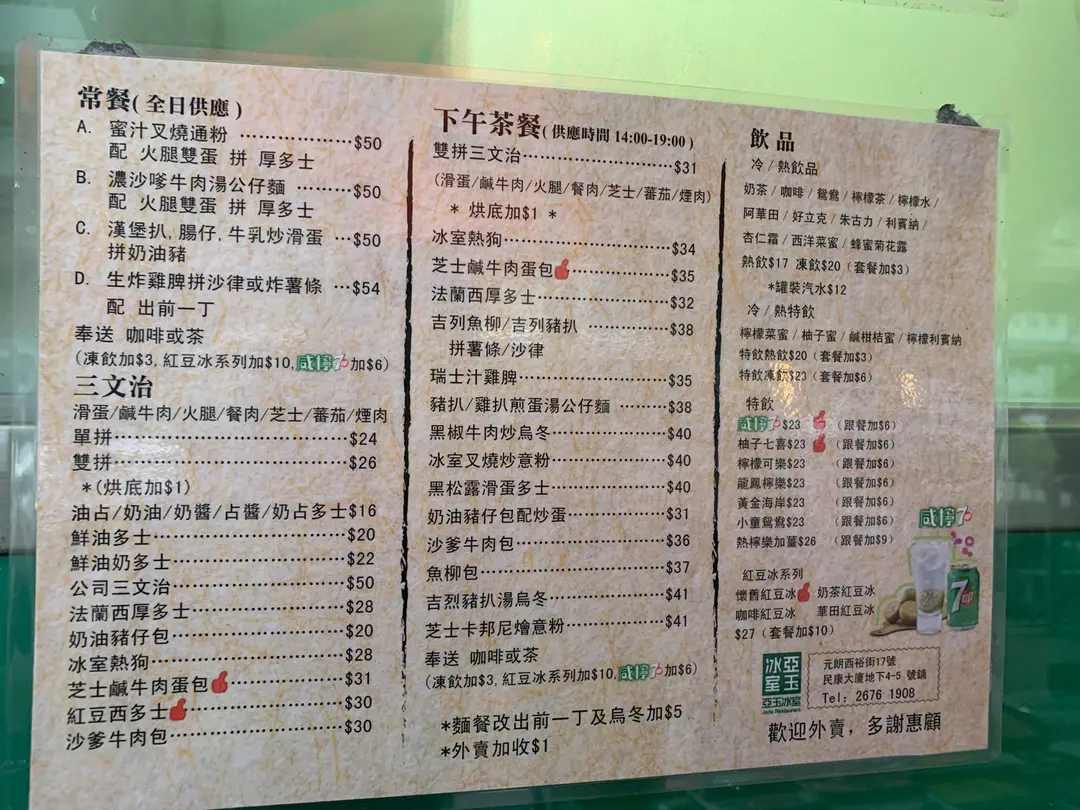 常餐( 全日供應 )
A. 蜜汁叉燒通粉 ……………$50
配 火腿雙蛋 拼 厚多士
B. 濃沙嗲牛肉湯公仔麵 ………$50
配 火腿雙蛋 拼 厚多士
C. 漢堡扒, 腸仔, 牛乳炒滑蛋 …$50
拼奶油豬
D. 生炸雞脾拼沙律或炸薯條 …$54
配 出前一丁
奉送 咖啡或茶
(凍飲加$3, 紅豆冰系列加$10, 咸檸7 加$6)
三文治
滑蛋/鹹牛肉/火腿/餐肉/芝士/蕃茄/煙肉
單拼……………………………$24
雙拼……………………………$26
*(烘底加$1)
油占/奶油/奶醬/占醬/奶占多士$16
鮮油多士………………………$20
鮮油奶多士……………………$22
公司三文治……………………$50
法蘭西厚多士…………………$28
奶油豬仔包……………………$20
冰室熱狗………………………$28
芝士鹹牛肉蛋包………………$31
紅豆西多士……………………$30
沙爹牛肉包……………………$30
下午茶餐( 供應時間 14:00-19:00 )
雙拼三文治……………………$31
(滑蛋/鹹牛肉/火腿/餐肉/芝士/蕃茄/煙肉)
* 烘底加$1 *
冰室熱狗………………………$34
芝士鹹牛肉蛋包………………$35
法蘭西厚多士…………………$32
吉列魚柳/吉列豬扒 …………$38
拼薯條/沙律
瑞士汁雞脾……………………$35
豬扒/雞扒煎蛋湯公仔麵 ………$38
黑椒牛肉炒烏冬………………$40
冰室叉燒炒意粉………………$40
黑松露滑蛋多士………………$40
奶油豬仔包配炒蛋……………$31
沙爹牛肉包……………………$36
魚柳包…………………………$37
吉烈豬扒湯烏冬………………$41
芝士卡邦尼燴意粉……………$41
奉送 咖啡或茶
(凍飲加$3, 紅豆冰系列加$10, 咸檸7 加$6)
*麵餐改出前一丁及烏冬加$5
*外賣加收$1
飲品
冷 / 熱飲品
奶茶 / 咖啡 / 鴛鴦 / 檸檬茶 / 檸檬水 /
阿華田 / 好立克 / 朱古力 / 利賓納 /
杏仁霜 / 西洋菜蜜 / 蜂蜜菊花露
熱飲$17 凍飲$20 (套餐加$3)
*罐裝汽水$12
冷 / 熱特飲
檸檬菜蜜 / 柚子蜜 / 鹹柑桔蜜 / 檸檬利賓納
特飲熱飲$20 (套餐加$3)
特飲凍飲$23 (套餐加$6)
特飲
咸檸7 $23 (跟餐加$6)
柚子七喜$23 (跟餐加$6)
檸檬可樂$23 (跟餐加$6)
龍鳳檸樂$23 (跟餐加$6)
黃金海岸$23 (跟餐加$6)
小童鴛鴦$23 (跟餐加$6)
熱檸樂加薑$26 (跟餐加$9)
咸檸7
紅豆冰系列
懷舊紅豆冰 奶茶紅豆冰
咖啡紅豆冰 華田紅豆冰
$27 (套餐加$10)
7up
亞玉冰室
亞玉冰室
Jade Restaurant
元朗西裕街17號
民康大廈地下4-5 號鋪
Tel: 2676 1908
歡迎外賣, 多謝惠顧